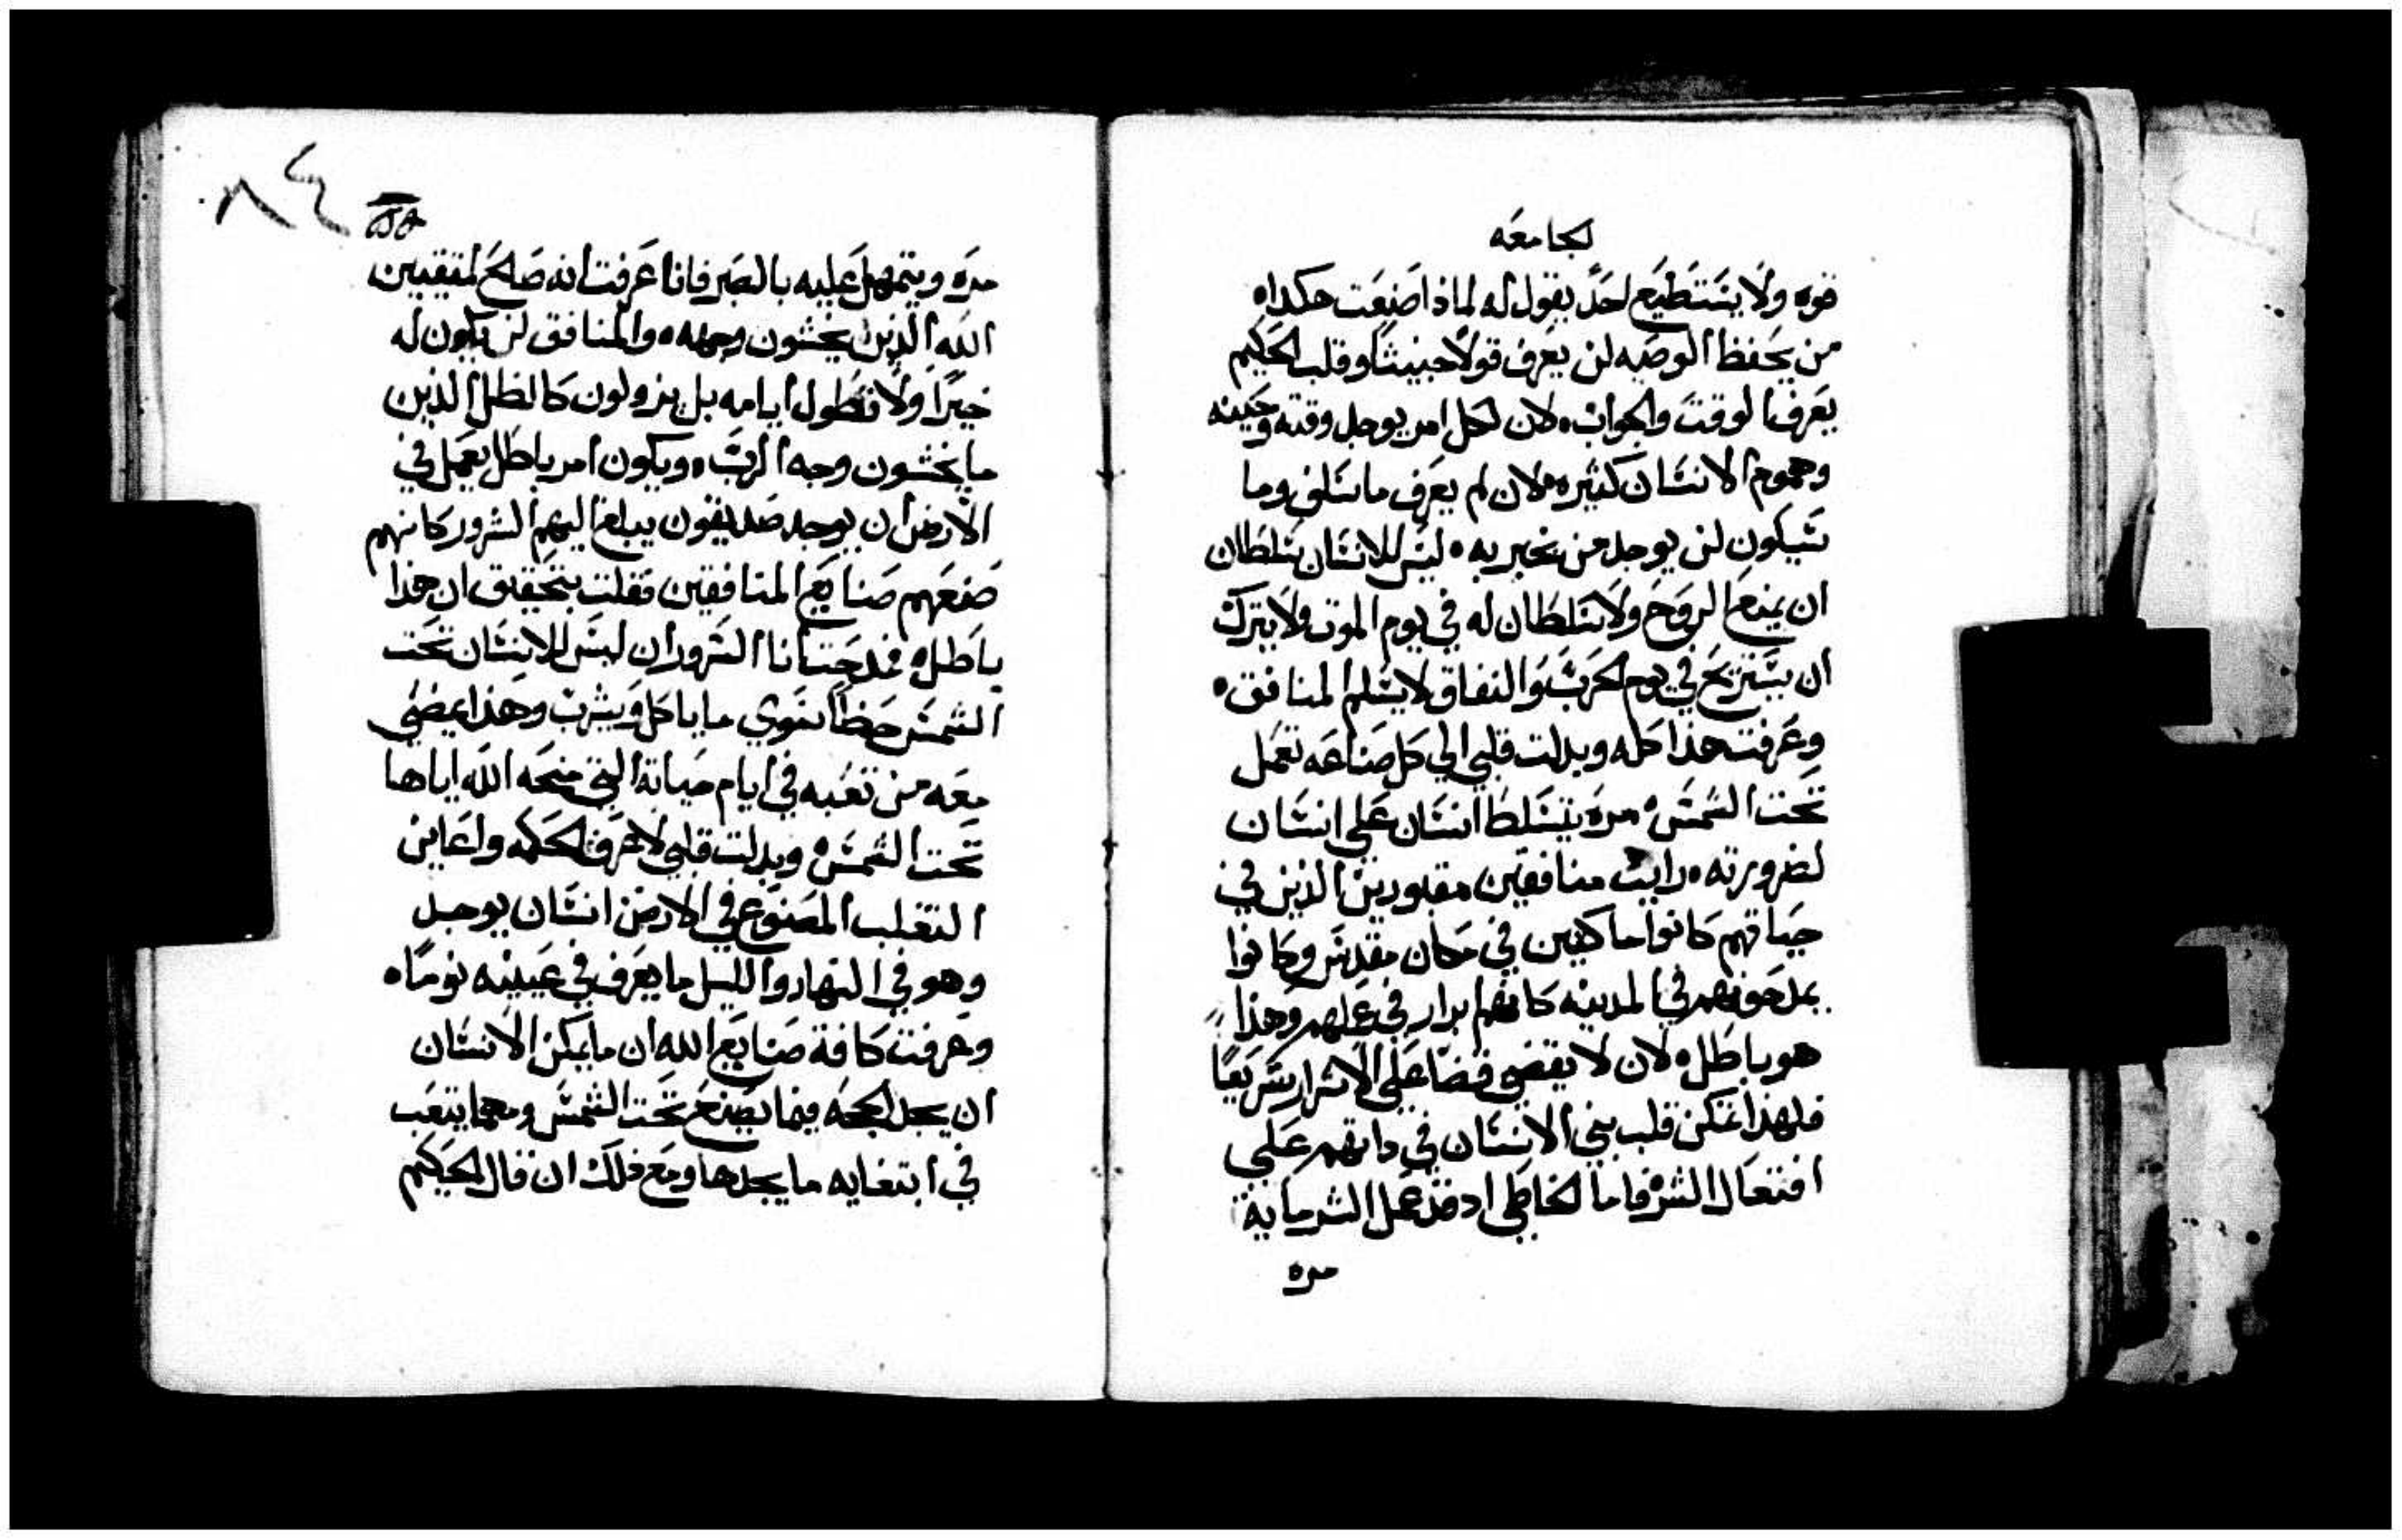 الجامعه
قوه ولا يستطيع احد يقول له لماذا صنعت هكدا
من يحفظ الوصيه لن يعرف قولاً خبيثاً وقلب الحكيم
يعرف الوقت والجواب ٠ لان لكل امر يوجد وقته وحينه
وهموم الانسان كثيره لان لم يعرف ما سلف وما
سيكون لن يوجد من يخبر به ٠ ليس للانسان سلطان
ان يمنع الروح ولا سلطان له في يوم الموت ولا يترك
ان يستريح في يوم الحرب والنفاق لا يسلم المنافق ٠
وعرفت هذا كله وبدلت قلبي الي كل صناعه تعمل
تحت الشمس مره يتسلط انسان علي انسان
لضرورته ٠ رايت منافقين مقبورين الذين في
حياتهم كانوا ماكثين في مكان مقدس وكانوا
يمدحونهم في المدينه كانهم ابرار في عملهم وهذا
هو باطل ٠ لان لا يقضي قضا علي الاشرار سريعاً
فلهذا تمكن قلب بني الانسان في داتهم علي
افتعال الشر فاما الخاطي اد قد عمل الشر مايه
مره
٨٤
مره ويتمهل عليه بالصبر فانا عرفت انه صالح لمتقيين
الله الذين يخشون وجهه ٠ والمنافق لن يكون له
خيراً ولا تطول ايامه بل يزولون كالظل الذين
ما يخشون وجه الرب ٠ ويكون امر باطل يعمل في
الارض ان يوجد صديقون يبلغ اليهم الشرور كانهم
صنعهم صنايع المنافقين فقلت بتحقيق ان هذا
باطل ٠ فمدحت انا السرور ان ليس للانسان تحت
الشمس حظاً سوي ما ياكل ويشرب وهذا يمضي
معه من تعبه في ايام حياته التي منحه الله اياها
تحت الشمس ٠ وبدلت قلبي لاعرف الحكمه واعاين
التغلب المصنوع في الارض انسان يوجد
وهو في النهار والليل ما يعرف في عينيه نوماً ٠
وعرفت كافة صنايع الله ان ما يمكن الانسان
ان يجد الجحه فيما يصنع تحت الشمس ومهما يتعب
في ابتغايه ما يجدها ومع ذلك ان قال الحكيم